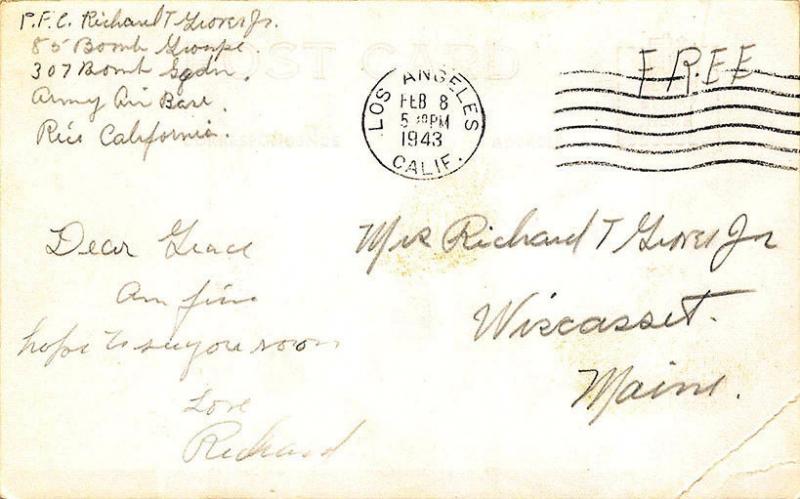 P.F.C. Richard T Grover Jr.
85 Bomb Groupe.
307 Bomb Sqdn.
Army Air Base.
Rice California.
POST CARD
CORRESPONDENCE
ADDRESS
LOS ANGELES
FEB 8
PM
1943
CALIF.
FREE
Dear Grace
Am fine
hope to see you soon
Love
Richard
Mrs Richard T Grover Jr
Wiscasset.
Maine.